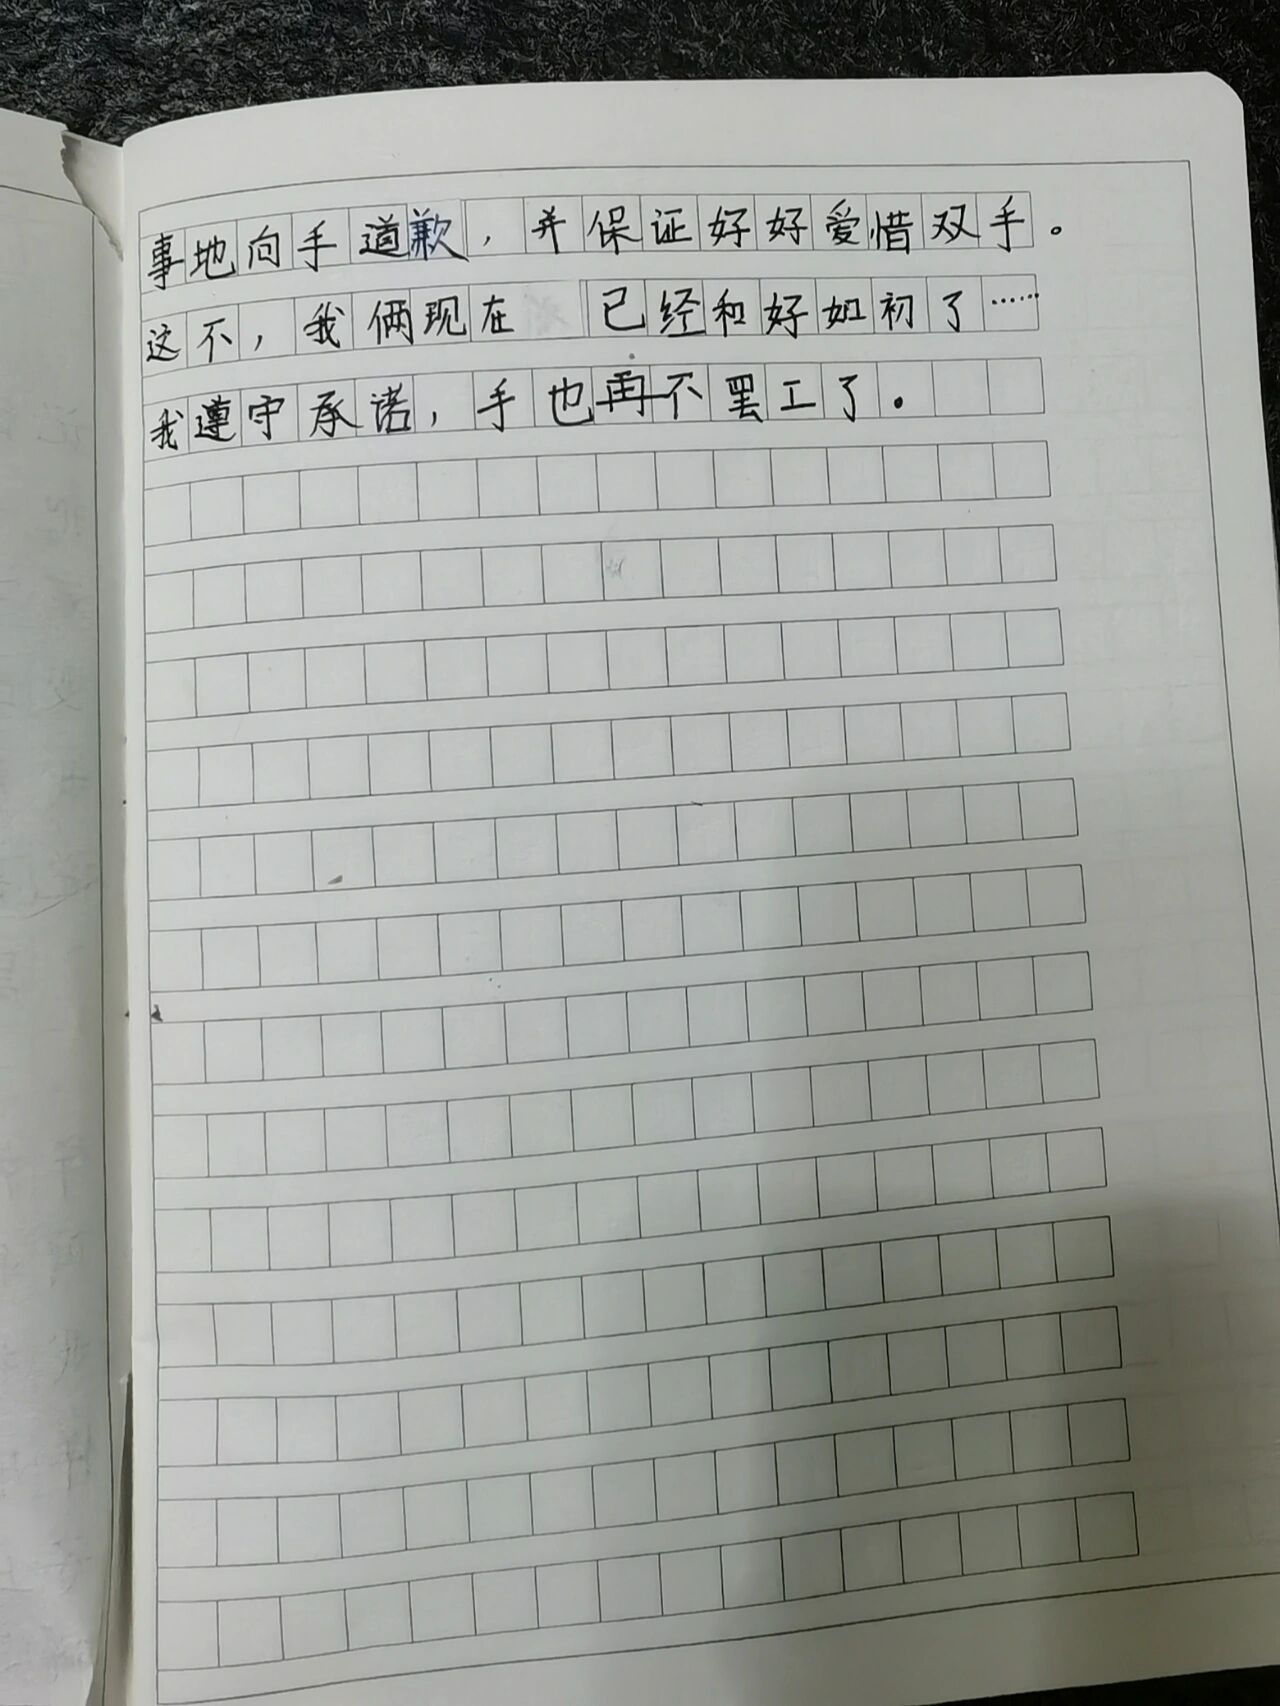 事地向手道歉，并保证好好爱惜双手。
这不，我俩现在已经和好如初了……
我遵守承诺，手也再不罢工了。